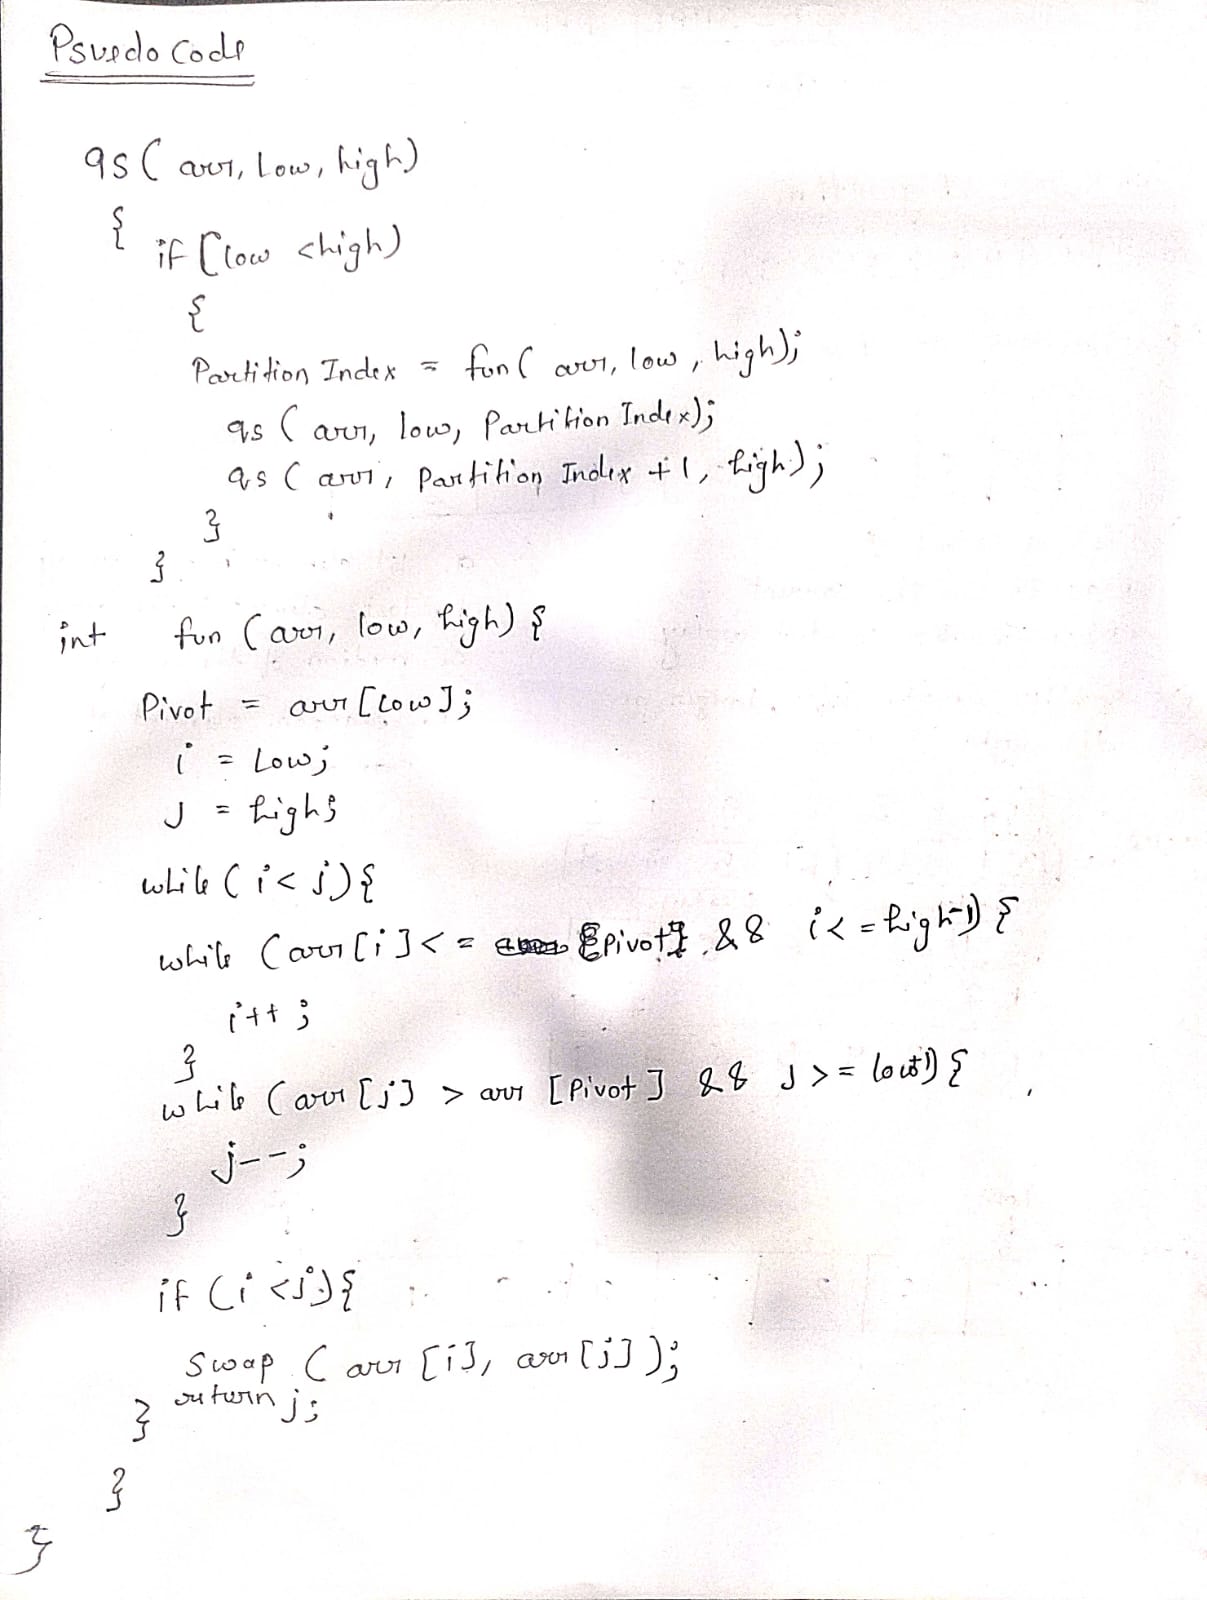 Psuedo Code
qs ( arr, Low, high)
{
if (low <high)
{
Partition Index = fun( arr, low, high);
qs ( arr, low, Partition Index);
qs ( arr, Partition Index +1, high);
}
}
int fun (arr, low, high) {
Pivot = arr [Low];
i = Low;
J = high;
while ( i< j){
while (arr[i]<= Pivot && i<=high-1) {
i++;
}
while (arr [j] > arr [Pivot] && J >= low+1) {
j--;
}
if (i <j){
Swap ( arr [i], arr [j] );
return j;
}
}
}